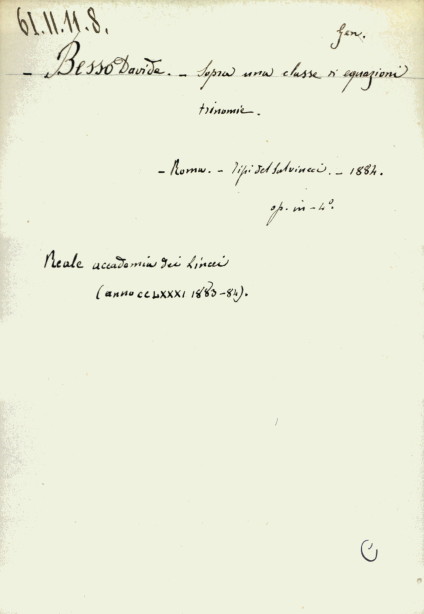 61.11.11.8.
Gen.
- Besso Davide. - Sopra una classe di equazioni
trinomie.
- Roma. - Tipi del Salviucci. - 1884.
op. in-4º.
Reale accademia dei Lincei
(anno CCLXXXI 1883-84).
C